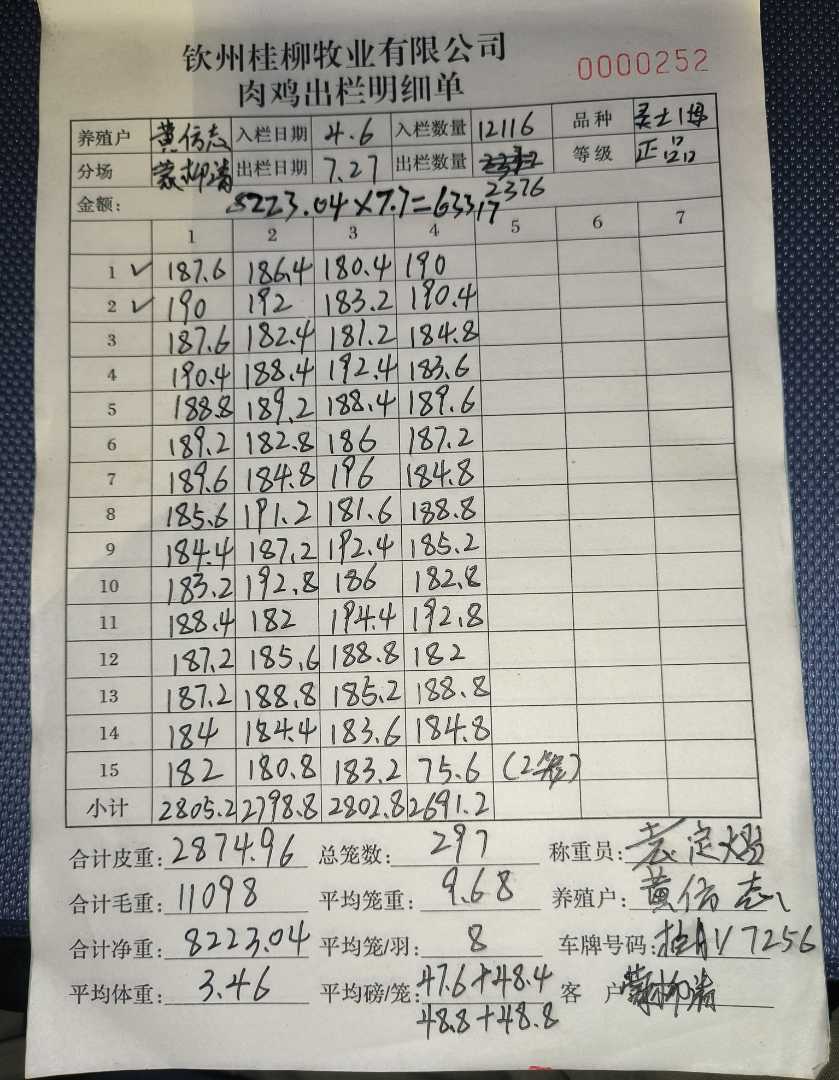 钦州桂柳牧业有限公司
0000252
肉鸡出栏明细单
养殖户 黄信志 入栏日期 4.6 入栏数量 12116 品种
分场 蒙柳清 出栏日期 7.27 出栏数量 2376 等级 正品
金额: 8223.04×7.7=63317
1 2 3 4 5 6 7
1 ✓ 187.6 186.4 180.4 190
2 ✓ 190 192 183.2 190.4
3 187.6 182.4 181.2 184.8
4 190.4 188.4 192.4 183.6
5 188.8 189.2 188.4 189.6
6 189.2 182.8 186 187.2
7 189.6 184.8 196 184.8
8 185.6 191.2 181.6 188.8
9 184.4 187.2 192.4 185.2
10 183.2 192.8 186 182.8
11 188.4 182 194.4 192.8
12 187.2 185.6 188.8 182
13 187.2 188.8 185.2 188.8
14 184 184.4 183.6 184.8
15 182 180.8 183.2 75.6 (2笼)
小计 2805.2 2798.8 2802.8 2691.2
合计皮重: 2874.96 总笼数: 297 称重员:
合计毛重: 11098 平均笼重: 9.68 养殖户: 黄信志
合计净重: 8223.04 平均笼/羽: 8 车牌号码: 桂AV7256
平均体重: 3.46 平均磅/笼: 47.6+48.4 客户 蒙柳清
48.8+48.8